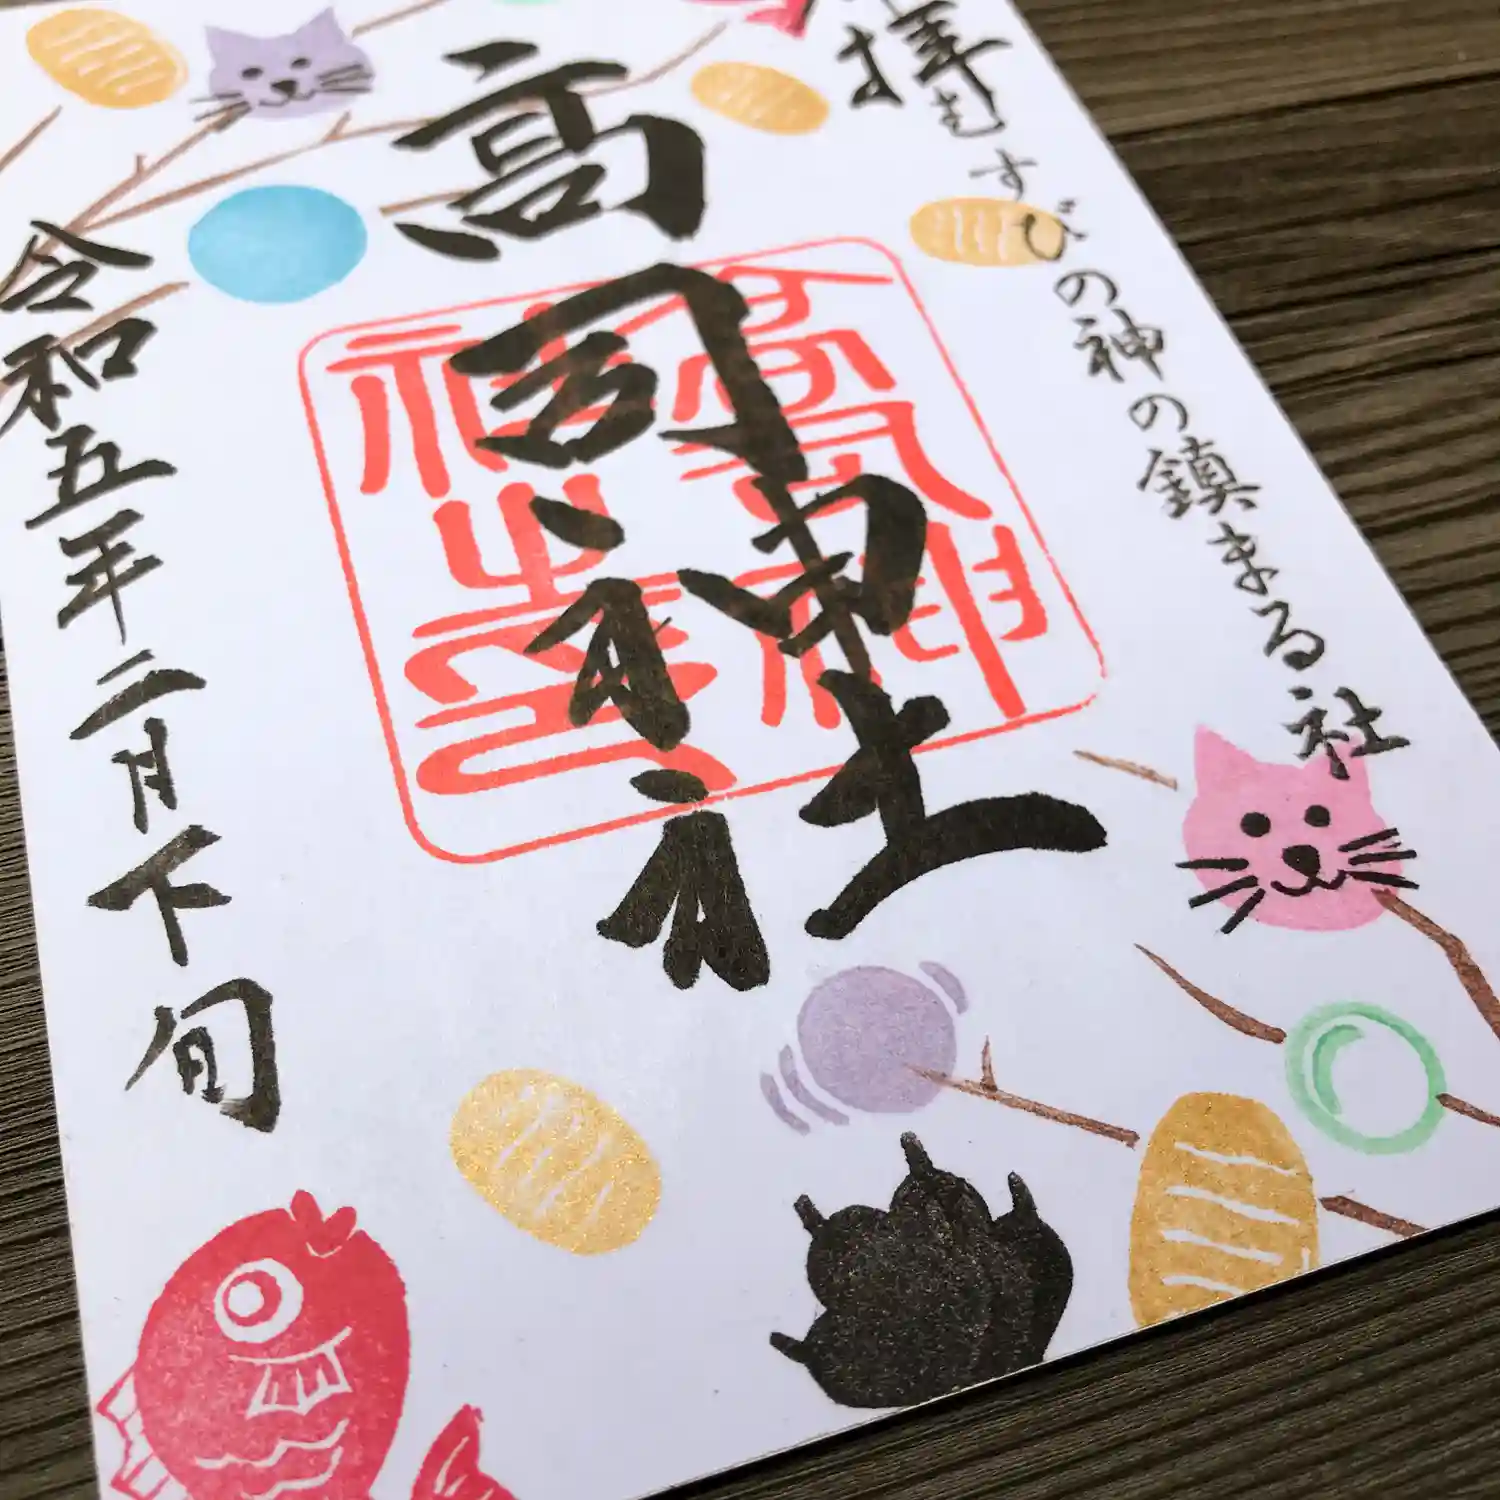 拝
むすびの神の鎮まる社
高司神社
高司神社之印
令和五年二月下旬